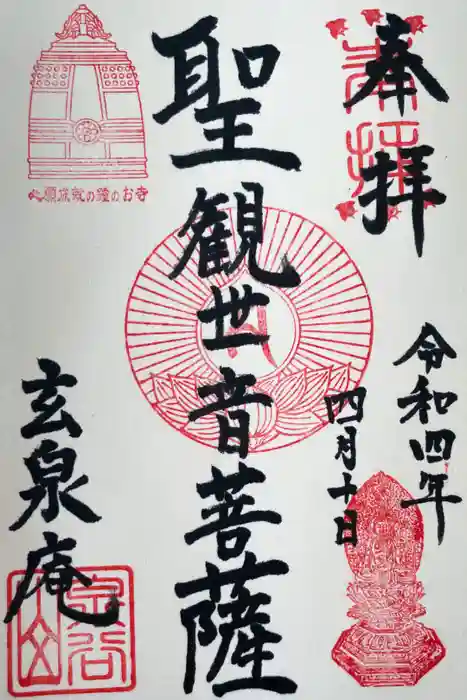 奉拝
令和四年
四月十日
聖観世音菩薩
心願成就の鐘のお寺
玄泉庵